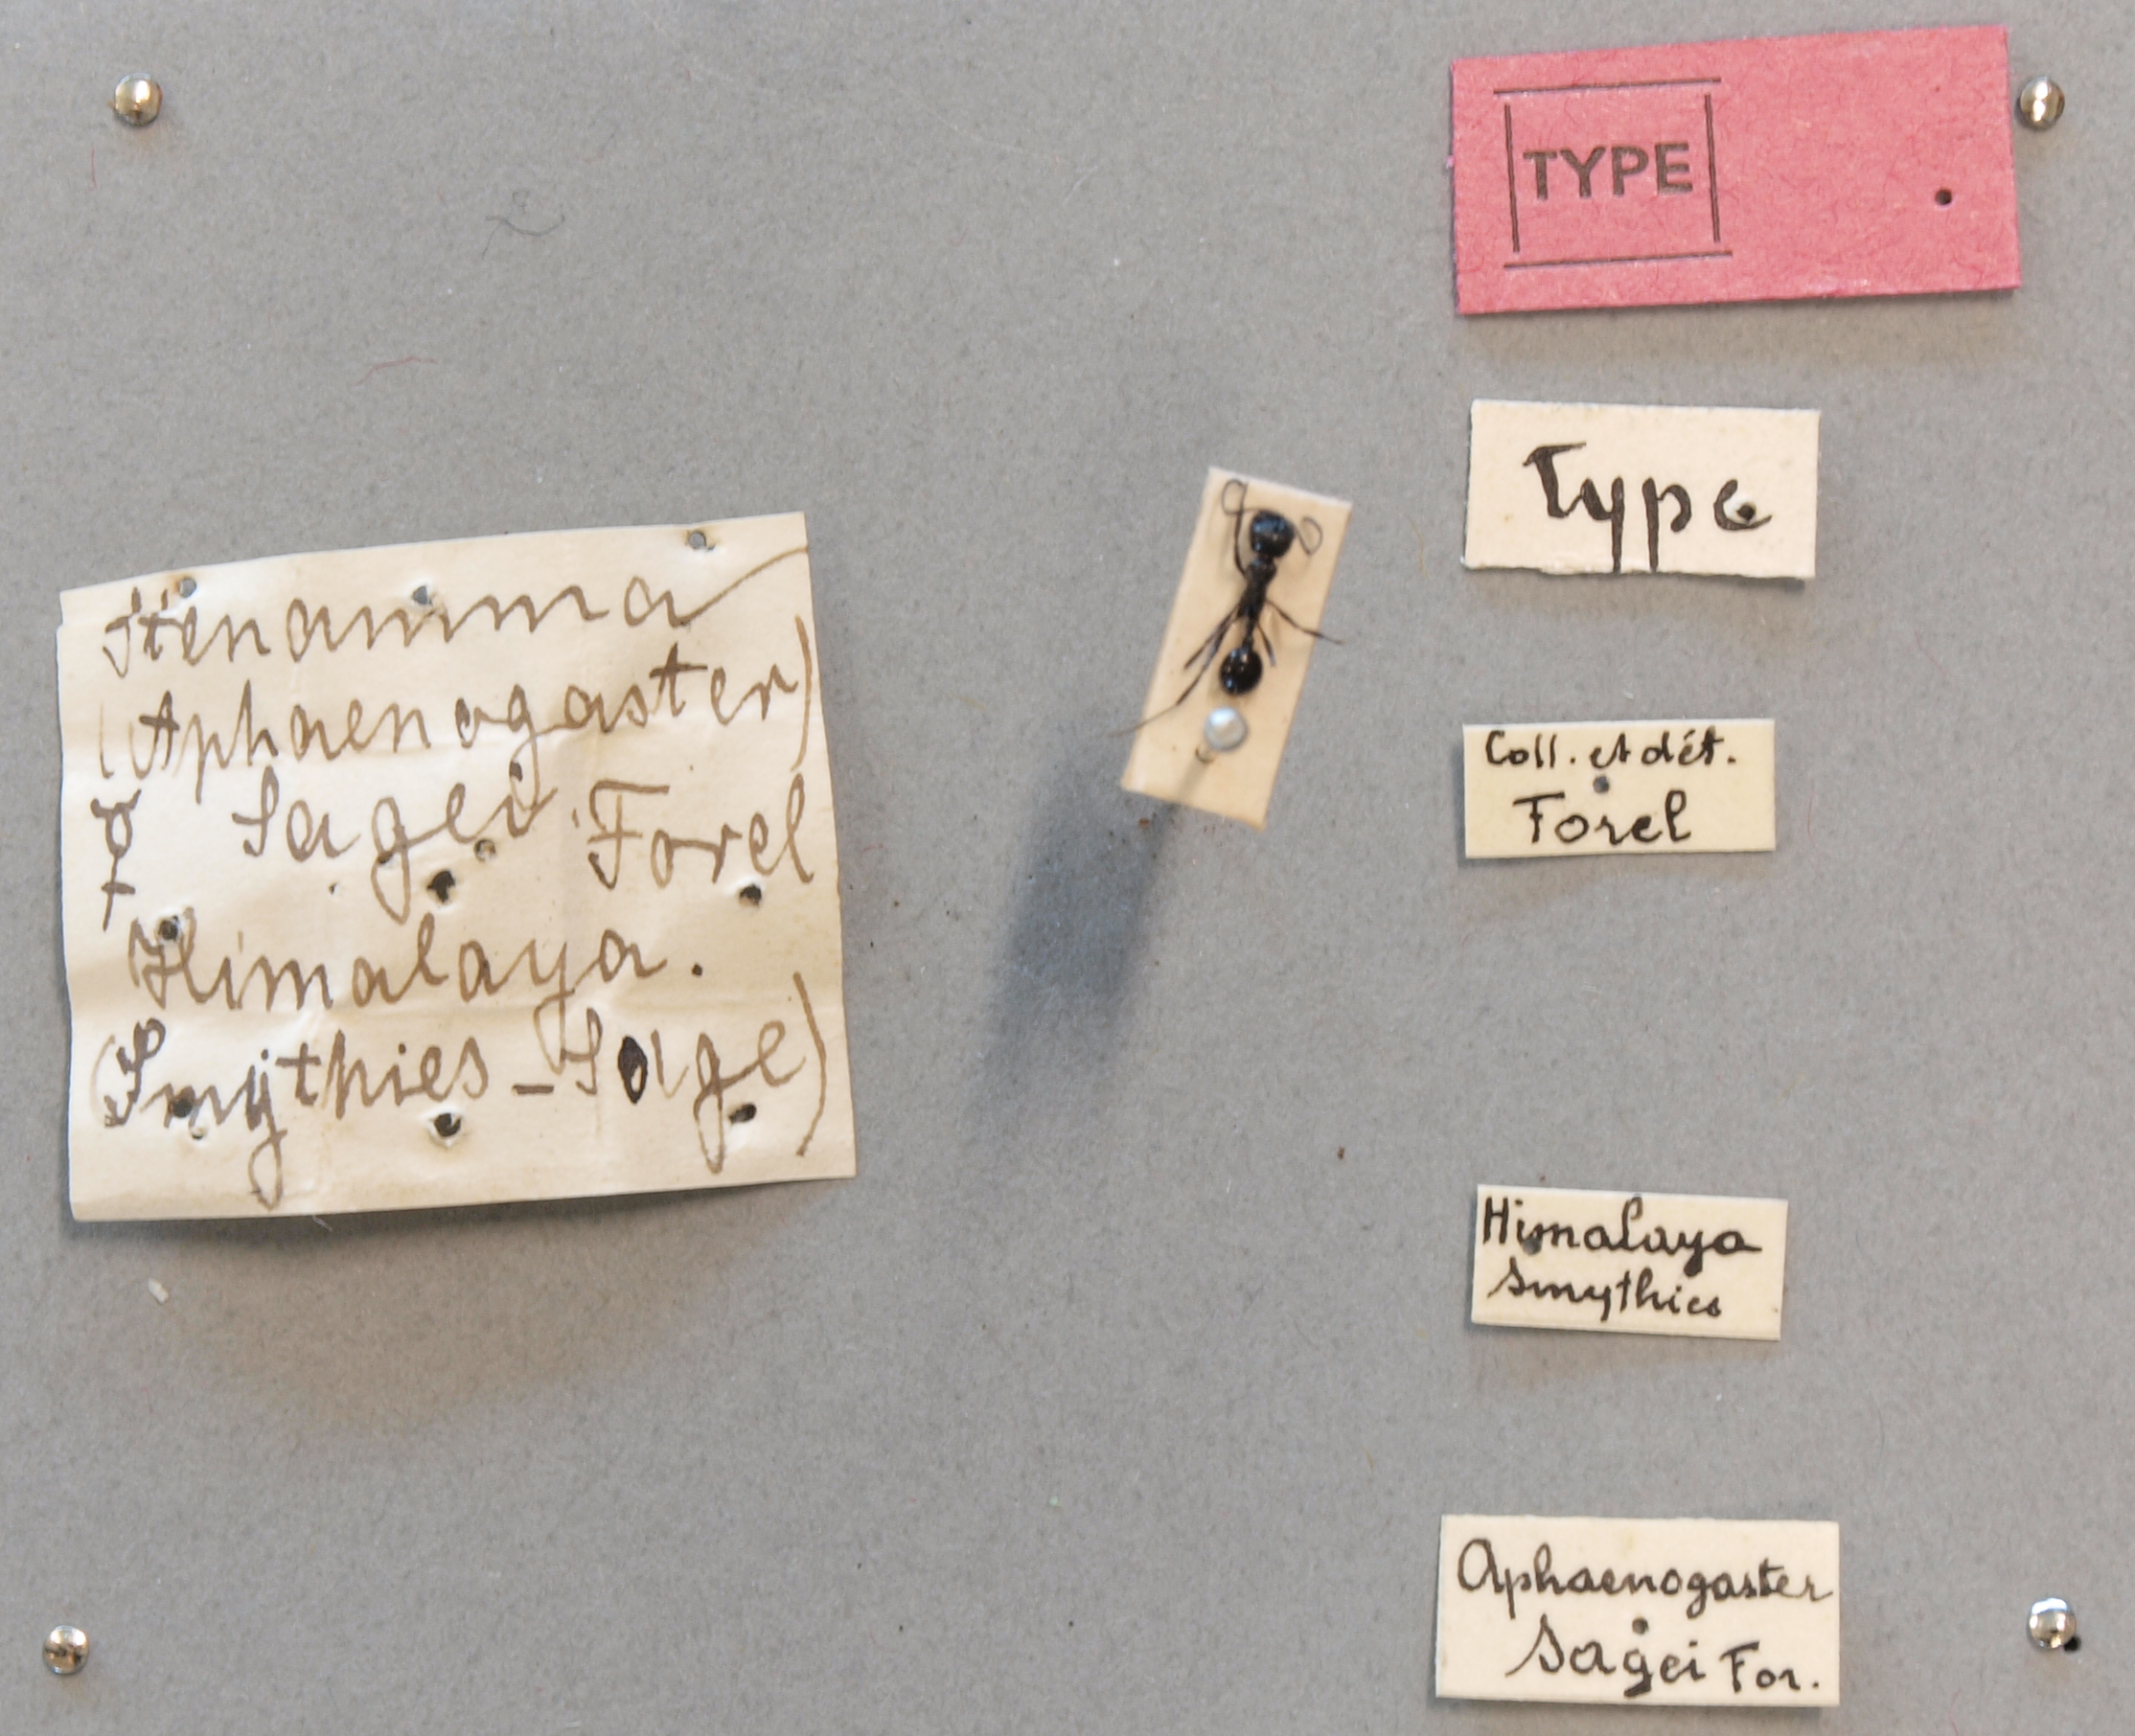 Stenamma
(Aphaenogaster)
☿ Sagei Forel
Himalaya.
(Smythies - Sage)
TYPE
Type
Coll. et dét.
Forel
Himalaya
Smythies
Aphaenogaster
Sagei For.